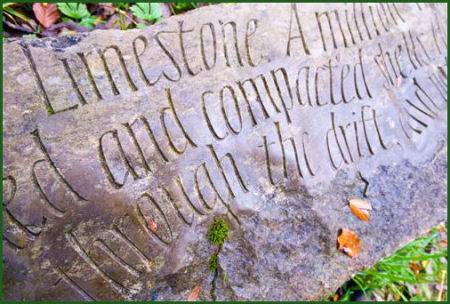 Limestone. A million
and compacted
through the drift,